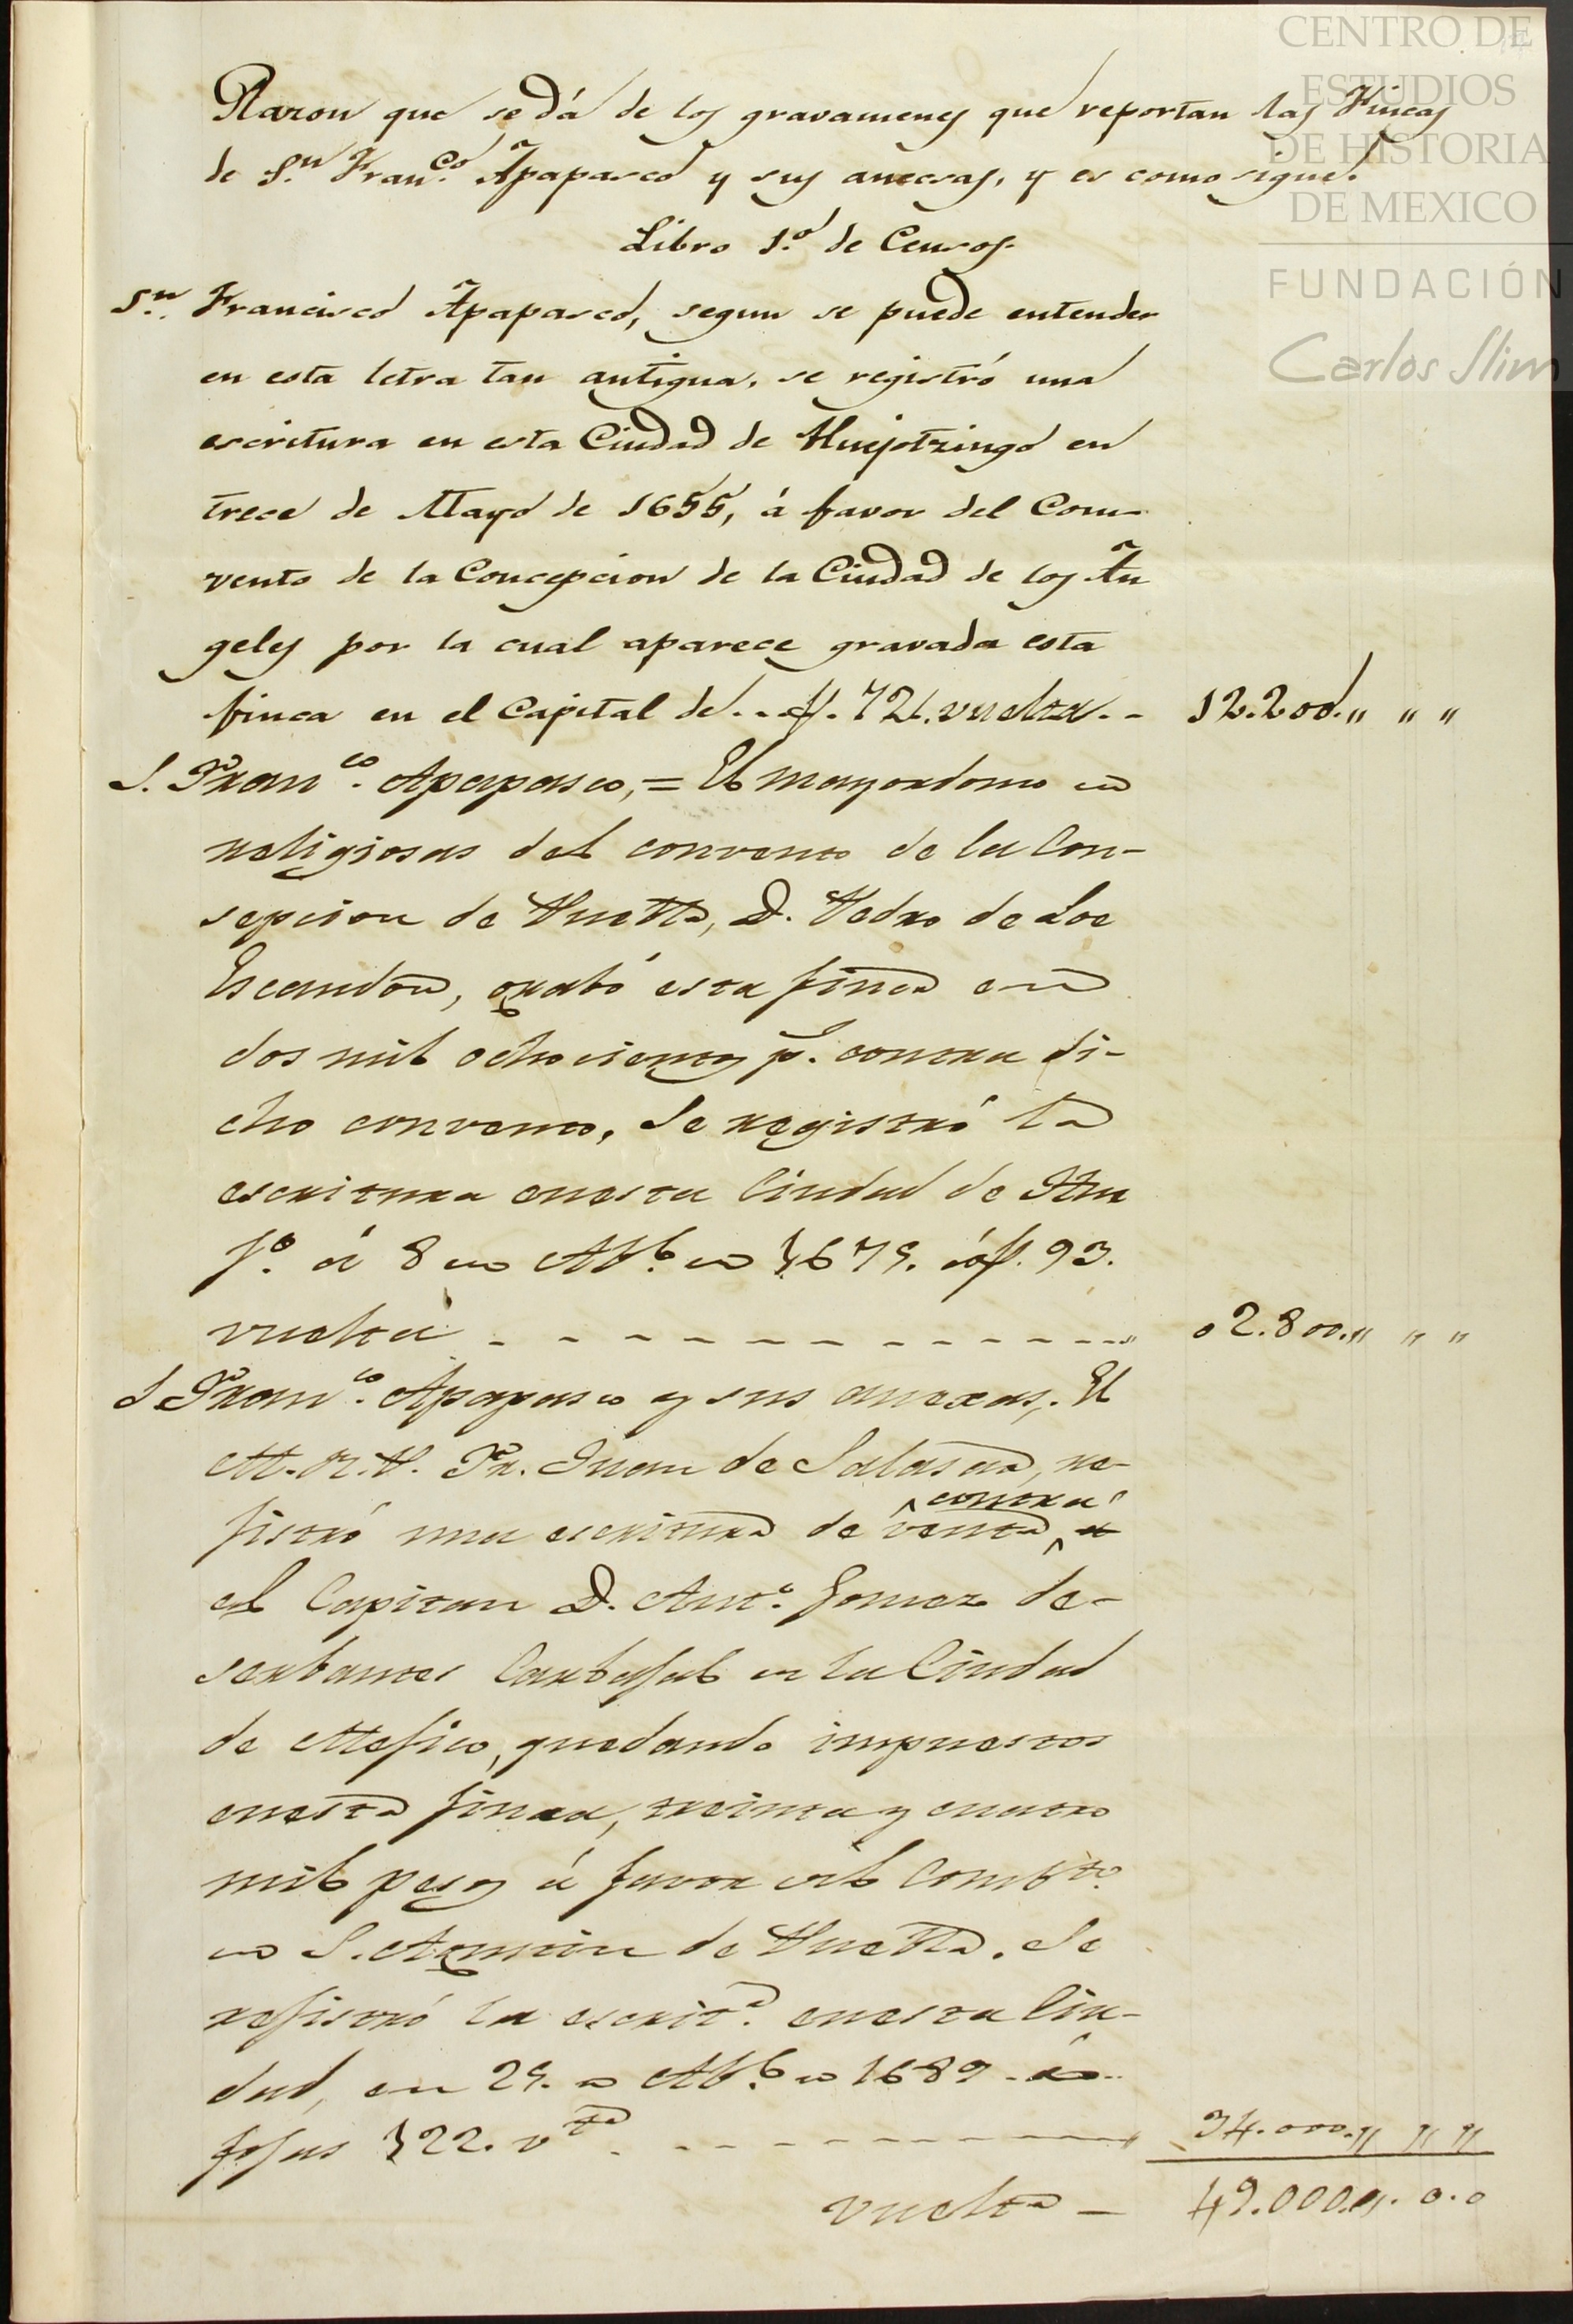 CENTRO DE
ESTUDIOS
DE HISTORIA
DE MEXICO
FUNDACIÓN
Carlos Slim
Razon que se dá de los gravamenes que reportan las Fincas
de S.n Fran.co Apapasco y sus anecsas, y es como sigue.
Libro 1.o de Censos.
S.n Francisco Apapasco, segun se puede entender
en esta letra tan antigua, se registró una
escritura en esta Ciudad de Huejotzingo en
trece de Mayo de 1655, á favor del Com-
vento de la Concepcion de la Ciudad de los An
geles por la cual aparece gravada esta
finca en el Capital de - - f. 72. vuelta. - 12.200. " " "
S. Fran.co Apapasco, = El mayordomo de
religiosas del convento de la Con-
sepcion de Puebla, D. Pedro de
Escandon, grabó esta finca en
dos mil ochocientos p.s contra di-
cho convento, se registró la
escritura en esta Ciudad de Hue
jo. á 8 de Ab. de 1679. á f. 93.
vuelta - - - - - - - - - - - - 02.800. " " "
S. Fran.co Apapasco y sus anexas, El
M. R. P. Fr. Juan de re-
jistró una escritura de venta contra
el Capitan D. Ant.o Gomez de
la Ciudad
de Mejico, quedando impuestos
en esta finca, treinta y cuatro
mil pesos á favor del Comb.to
de S. Agustin de Puebla. Se
rejistró la escrit.a en esta Ciu-
dad, en 29. de Ab. de 1689. á
fojas 122. v.ta - - - - - - - - - 34.000. " " "
vuelta - 49.000. 0. 0.0